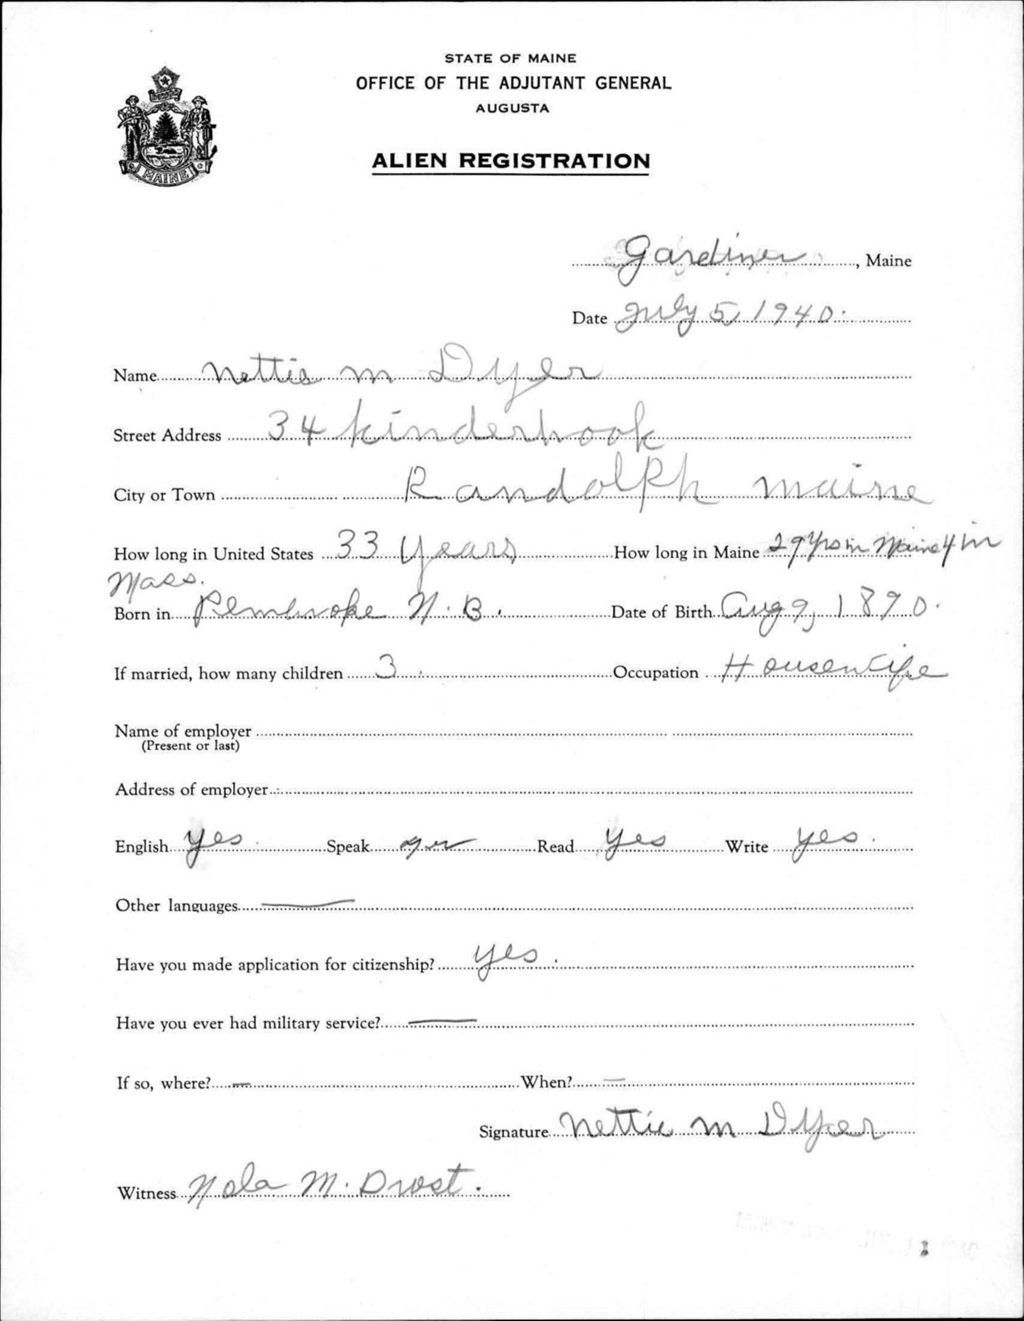 STATE OF MAINE
OFFICE OF THE ADJUTANT GENERAL
AUGUSTA
ALIEN REGISTRATION
MAINE
Gardiner, Maine
Date July 5, 1940.
Name Nettie M Dyer
Street Address 34 Kinderhook
City or Town Randolph Maine
How long in United States 33 Years How long in Maine 29 Yrs in Maine 4 in
Mass.
Born in Pembroke N.B. Date of Birth Aug 9, 1890.
If married, how many children 3. Occupation Housewife
Name of employer
(Present or last)
Address of employer
English Yes. Speak Read Yes Write Yes.
Other languages —
Have you made application for citizenship? Yes.
Have you ever had military service? —
If so, where? — When? —
Signature Nettie M Dyer
Witness Nola M. Drost.